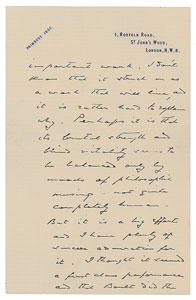 PRIMROSE 1800.
5, NORFOLK ROAD,
ST JOHN'S WOOD,
LONDON, N.W.8.
important work. I don't
know that it struck me as
a work that will live and
it is rather hard to explain
why. Perhaps it is that
its brutal strength and
blind vitality seem to
be balanced only by
moods of philosophic
musing - not quite
completely human.
But it is a big effort
and I have plenty of
sincere admiration for
it. I thought it seemed
a first class performance
and the Bank did the